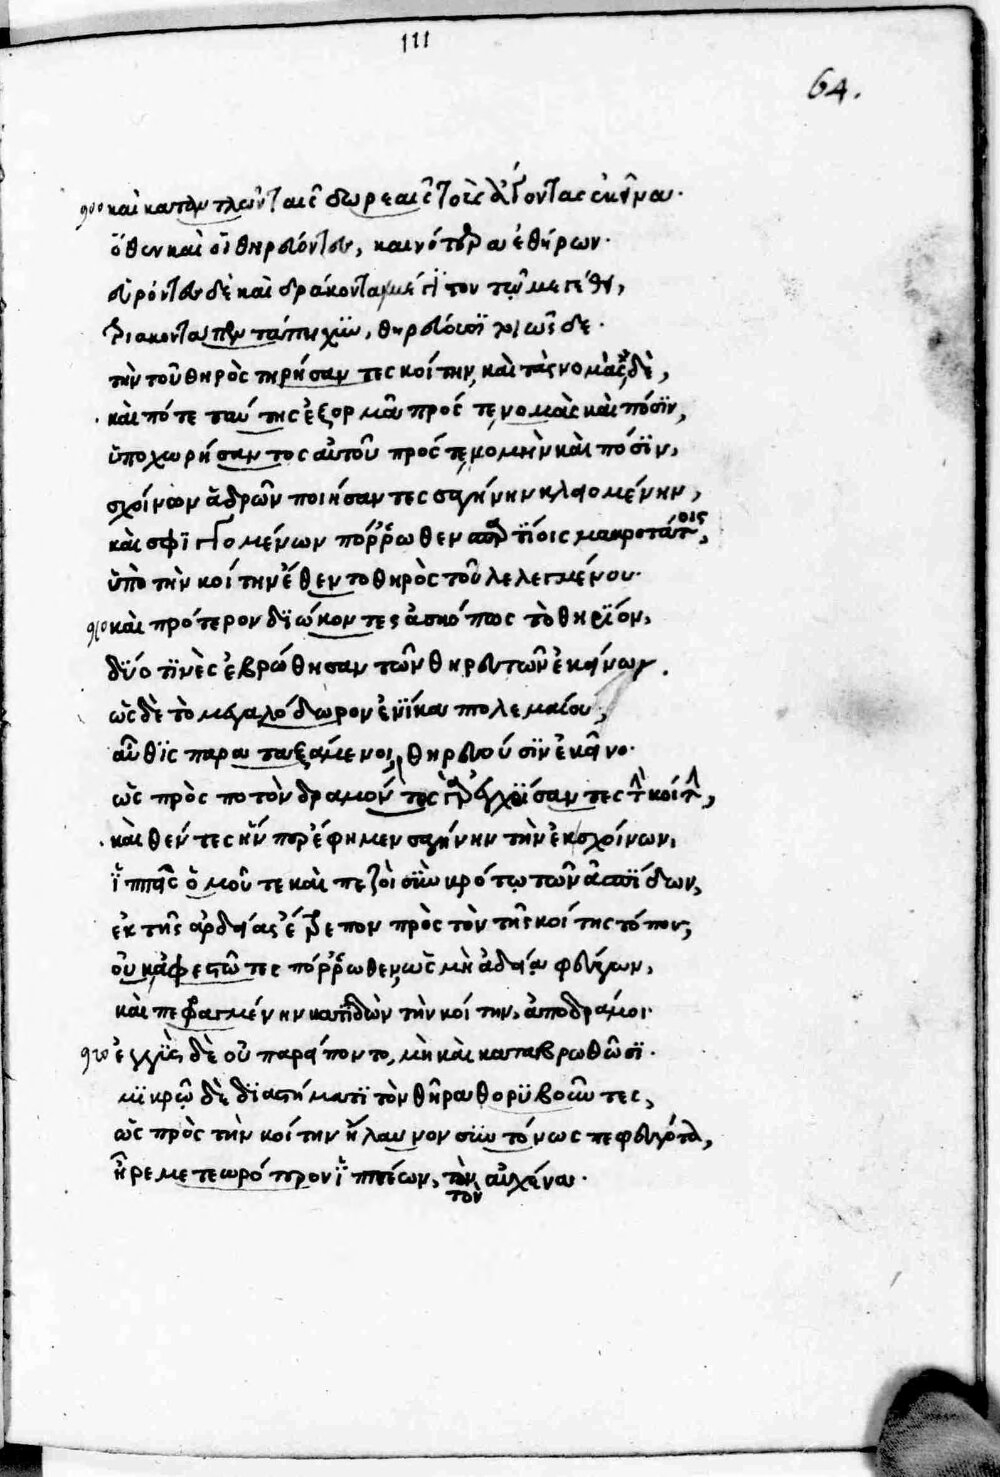 111
64.
900 καὶ καταπλουτῶν ταῖς δωρεαῖς τοὺς ἄγοντας ἐκεῖνα·
ὅθεν καὶ οἱ θηρεύοντες, καινότερα ἐθήρων·
εὑρόντες δὲ καὶ δράκοντα μέγιστον τῷ μεγέθει,
τριακονταπεντάπηχυν, θηρεύουσιν οὕτως δε·
τὴν τοῦ θηρὸς τηρήσαντες κοίτην, καὶ τὰς νομὰς δὲ,
καὶ πότε ταύτης ἐξορμᾶ πρός τε νομὰς καὶ πόσϊν,
ὑποχωρήσαντος αὐτοῦ πρός τε νομὴν καὶ πόσϊν,
σχοίνων ἁδρῶν ποιήσαντες σαγήνην κλειομένην,
καὶ σφιγγομένων πόῤῥωθεν ἀρτίοις μακροτάτοις,
ὑπὸ τὴν κοίτην ἔθεντο θηρὸς τοῦ λελεγμένου·
910 καὶ πρότερον διώκοντες ἀσκόπως τὸ θηρίον,
δύο τινὲς ἐβρώθησαν τῶν θηρευτῶν ἐκείνων.
ὡς δὲ τὸ μεγαλόδωρον ἐνίκα πολεμαίου,
αὖθις παραταξάμενοι, θηρεύουσιν ἐκεῖνο·
ὡς πρὸς ποτὸν δραμόντος γὰρ ἐγχώσαντες τὴν κοίτην,
καὶ θέντες ἥνπερ ἔφημεν σαγήνην τὴν ἐκ σχοίνων,
ἱππεῖς ὁμοῦ τε καὶ πεζοὶ σὺν κρότῳ τῶν ἀσπίδων,
ἐκ τῆς ἀρδείας ἔτρεπον πρὸς τὸν τῆς κοίτης τόπον,
οὐκ ἀφεστῶτες πόῤῥωθεν, ὡς μὴ ἀδείᾳ φεύγων,
καὶ πεφραγμένην κατιδὼν τὴν κοίτην, ἀποδράμοι·
920 ἐγγὺς δὲ οὐ παρείποντο, μὴ καὶ καταβρωθῶσι·
μικρῷ δὲ διαστήματι τὸν θῆρα θορυβοῦντες,
ὡς πρὸς τὴν κοίτην ἤλαυνον συντόνως πεφευγότα,
ἦρε μετεωρότερον ἱππέων, τὸν αὐχένα·
τον